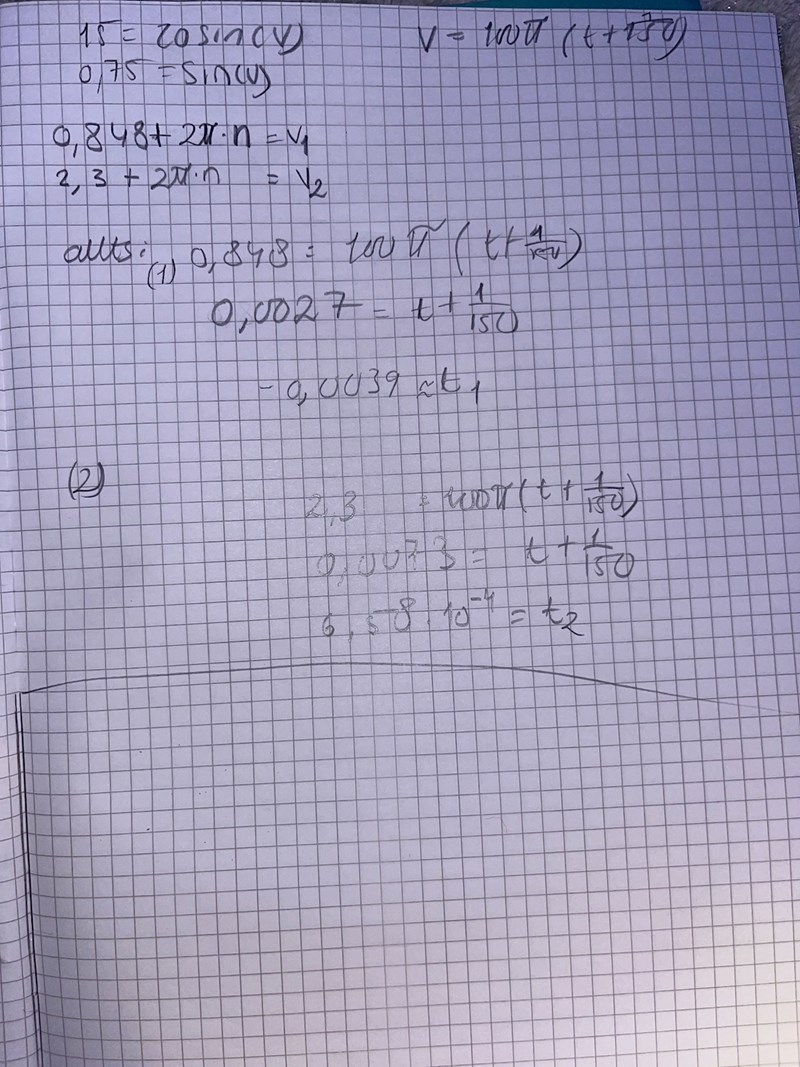 15 = 20 sin(v)    v = 100π (t + 1/150)
0,75 = sin(v)
0,848 + 2π·n = v₁
2,3 + 2π·n = v₂
(1) 0,848 = 100π (t + 1/150)
0,0027 = t + 1/150
-0,0039 ≈ t₁
(2) 2,3 = 100π (t + 1/150)
0,0073 = t + 1/150
6,58·10⁻⁴ = t₂